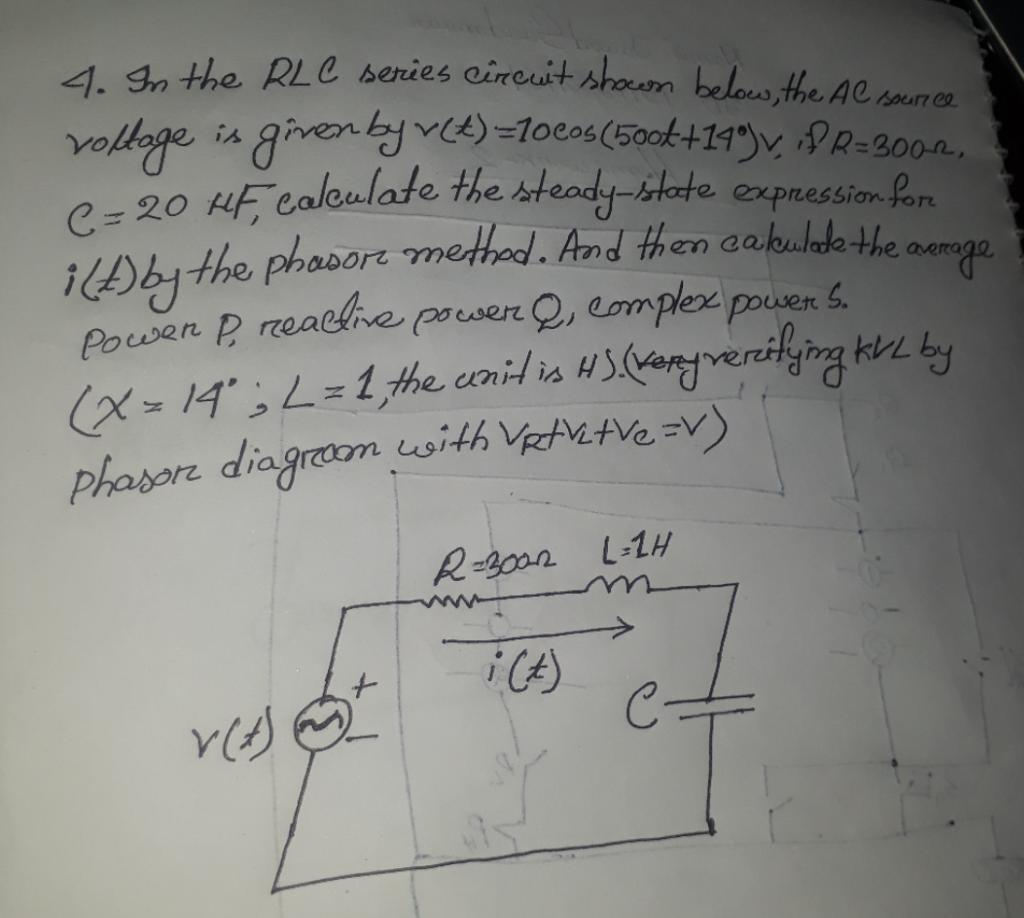 4. In the RLC series circuit shown below, the AC source
voltage is given by v(t)=10cos(500t+14°)V, if R=300Ω,
C=20 μF, calculate the steady-state expression for
i(t) by the phasor method. And then calculate the average
power P, reactive power Q, complex power S.
(X = 14°; L=1, the unit is H).(very verifying KVL by
phasor diagram with VR+VL+VC=V)
R=300Ω L=1H
i(t)
+
C
v(t)
-